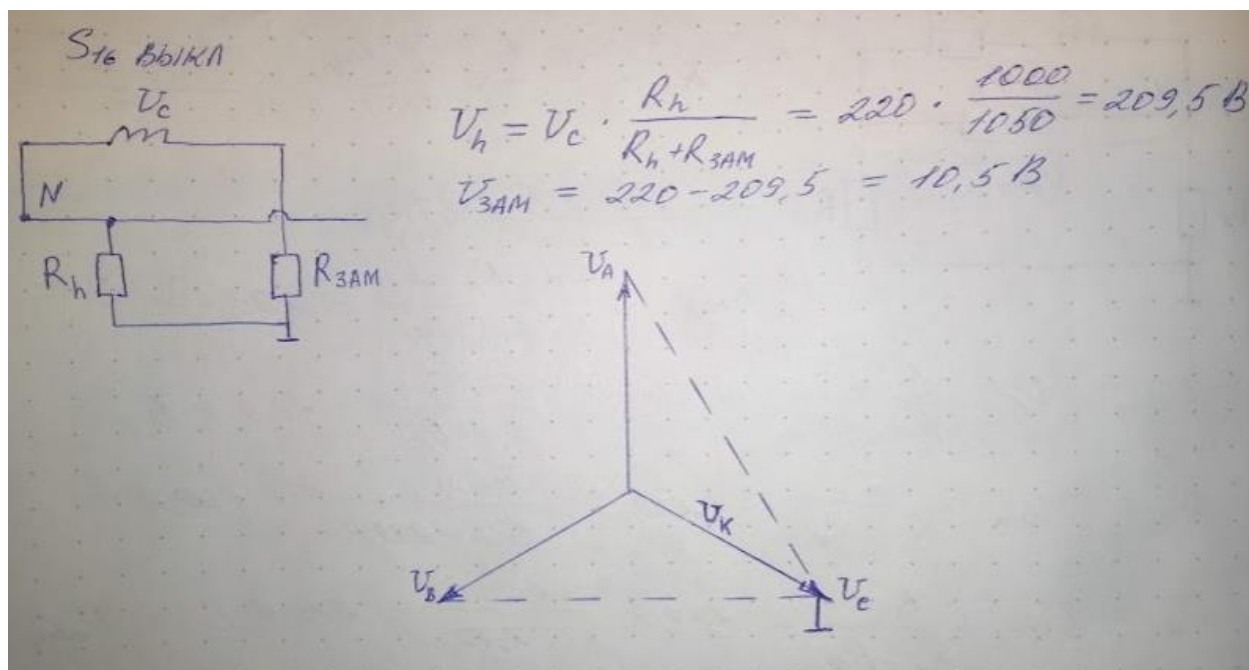 S₁₆ ВЫКЛ
U_C
N
R_h
R_ЗАМ
U_h = U_C · R_h / (R_h + R_ЗАМ) = 220 · 1000 / 1050 = 209,5 В
U_ЗАМ = 220 - 209,5 = 10,5 В
U_A
U_K
U_B
U_C